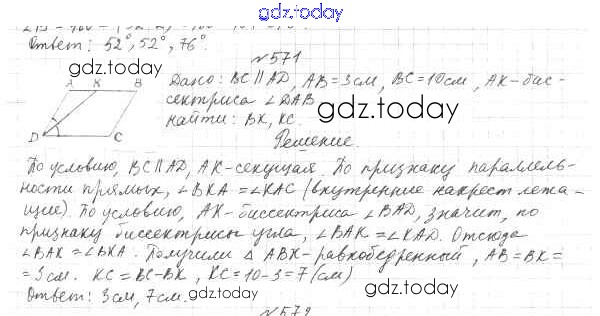 gdz.today
Ответ: 52°, 52°, 76°.
gdz.today
№571
A K B
D C
Дано: BC∥AD, AB=3см, BC=10см, AK-бис-
сектриса ∠DAB
gdz.today
найти: BK, KC.
Решение.
По условию, BC∥AD, AK-секущая. По признаку параллель-
ности прямых, ∠BKA=∠KAC (внутренние накрест лежа-
щие). По условию, AK-биссектриса ∠BAD, значит, по
признаку биссектрисы угла, ∠BAK=∠KAD. Отсюда
∠BAK=∠BKA. Получили △ ABK-равнобедренный, AB=BK=
=3см. KC=BC-BK, KC=10-3=7(см)
Ответ: 3см, 7см.
gdz.today
gdz.today
№572